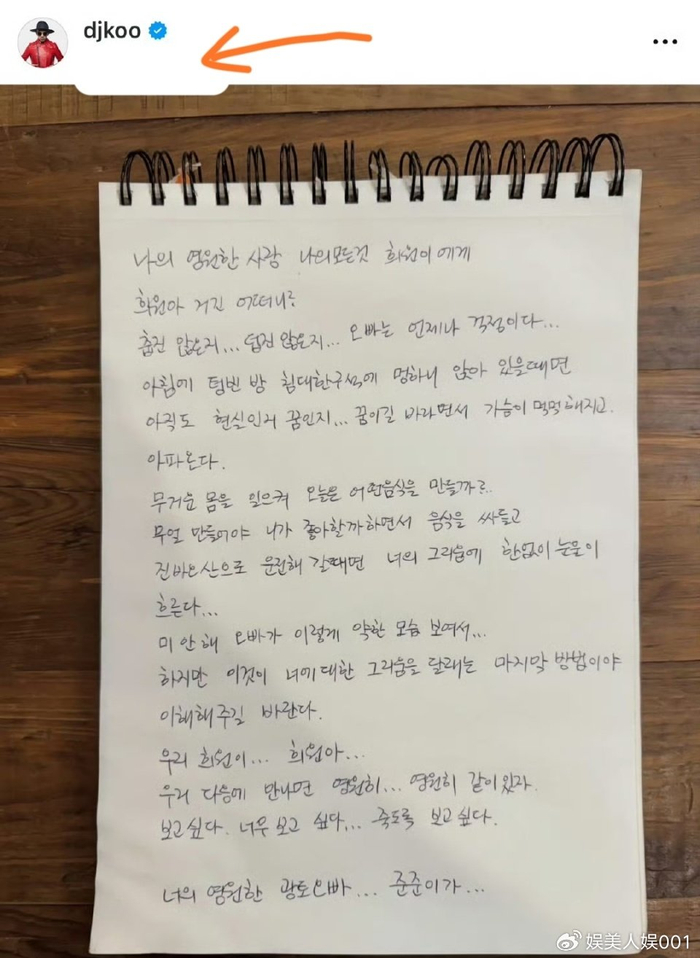 djkoo
나의 영원한 사랑 나의모든것 희원이에게
희원아 거긴 어떠니?
춥진 않은지... 덥진 않은지... 오빠는 언제나 걱정이다...
아침에 텅빈 방 침대한구석에 멍하니 앉아 있을때면
아직도 현실인지 꿈인지... 꿈이길 바라면서 가슴이 먹먹해지고.
아파온다.
무거운 몸을 일으켜 오늘은 어떤음식을 만들까?..
무얼 만들어야 니가 좋아할까하면서 음식을 싸들고
진바오산으로 운전해 갈때면 너의 그리움에 한없이 눈물이
흐른다...
미안해 오빠가 이렇게 약한 모습 보여서...
하지만 이것이 너에대한 그리움을 달래는 마지막 방법이야
이해해주길 바란다.
우리 희원이... 희원아...
우리 다음에 만나면 영원히... 영원히 같이있자.
보고싶다. 너무 보고 싶다... 죽도록 보고싶다.
너의 영원한 광토오빠... 준준이가...
娱美人娱001